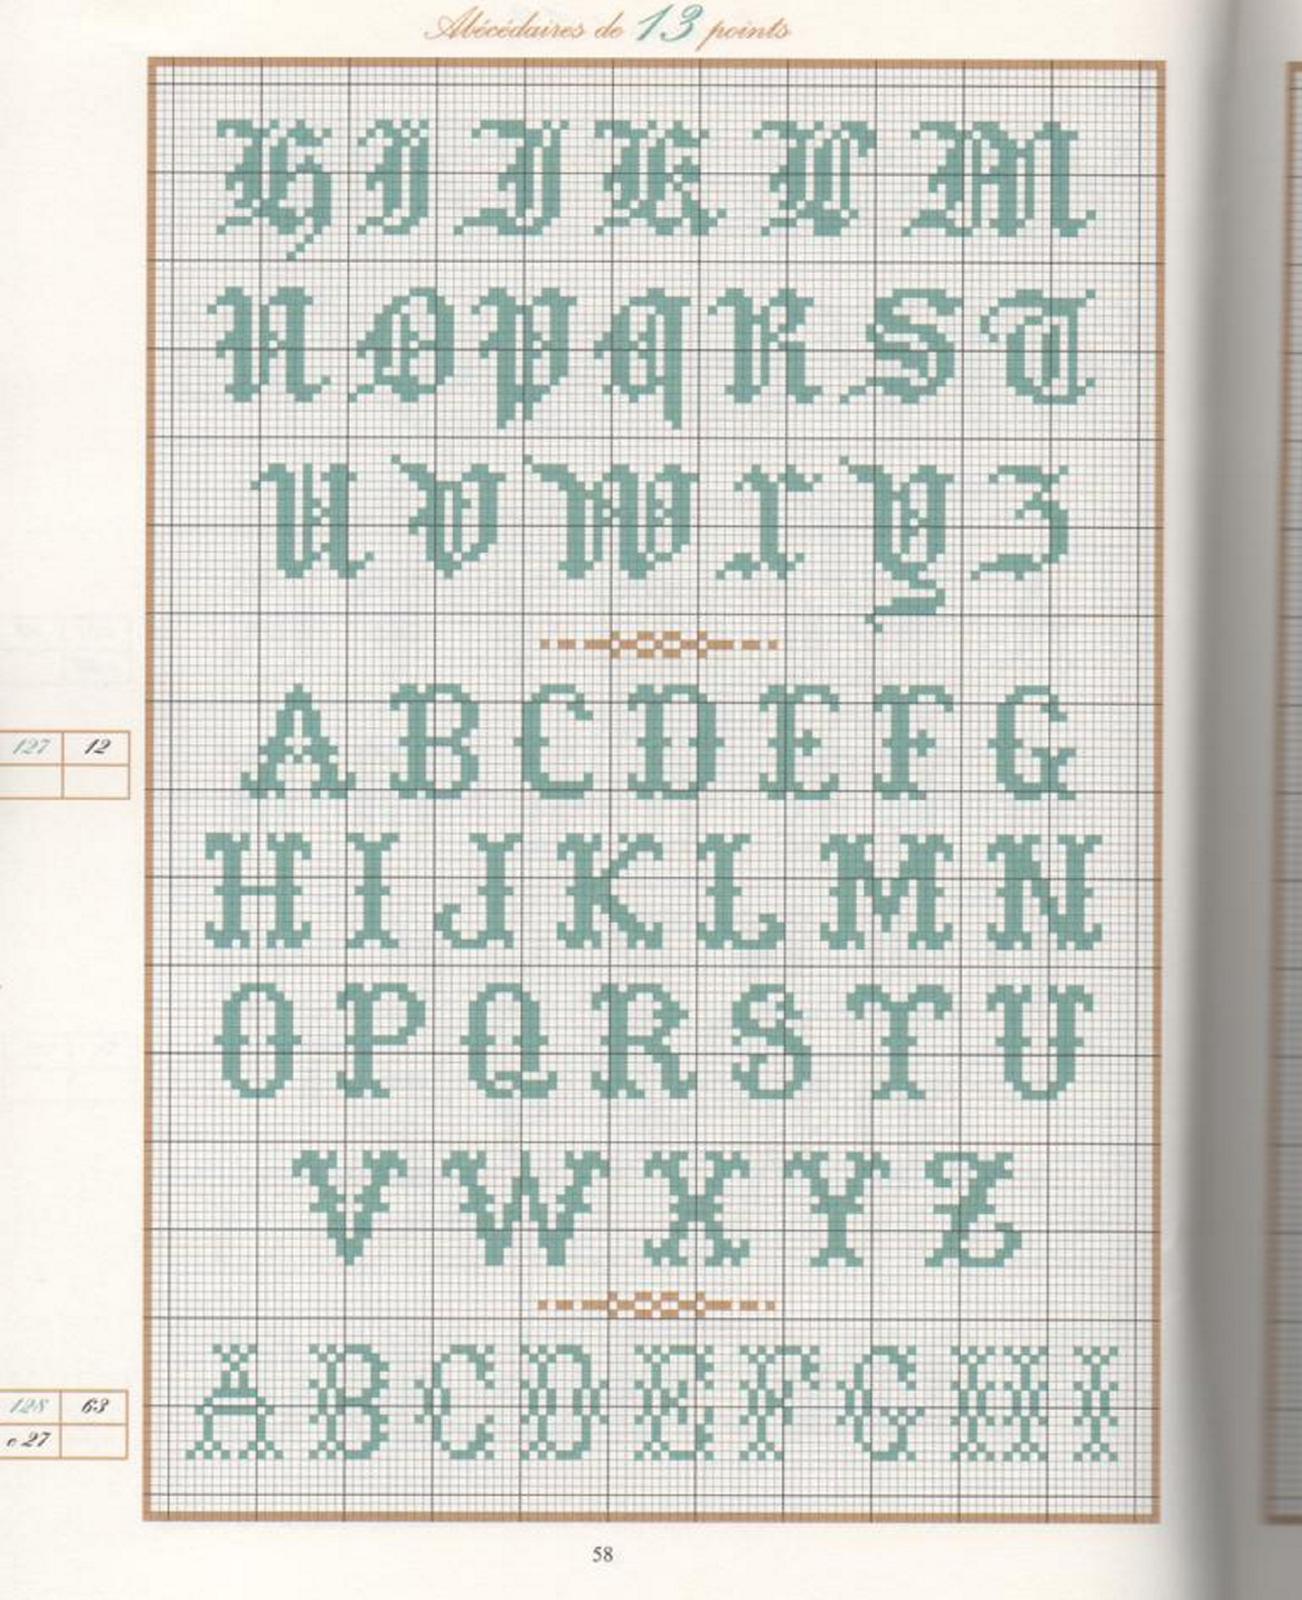 Abécédaires de 13 points
H I J K L M
N O P Q R S T
U V W X Y Z
A B C D E F G
127 12
H I J K L M N
O P Q R S T U
V W X Y Z
A B C D E F G H I
128 63
c 27
58